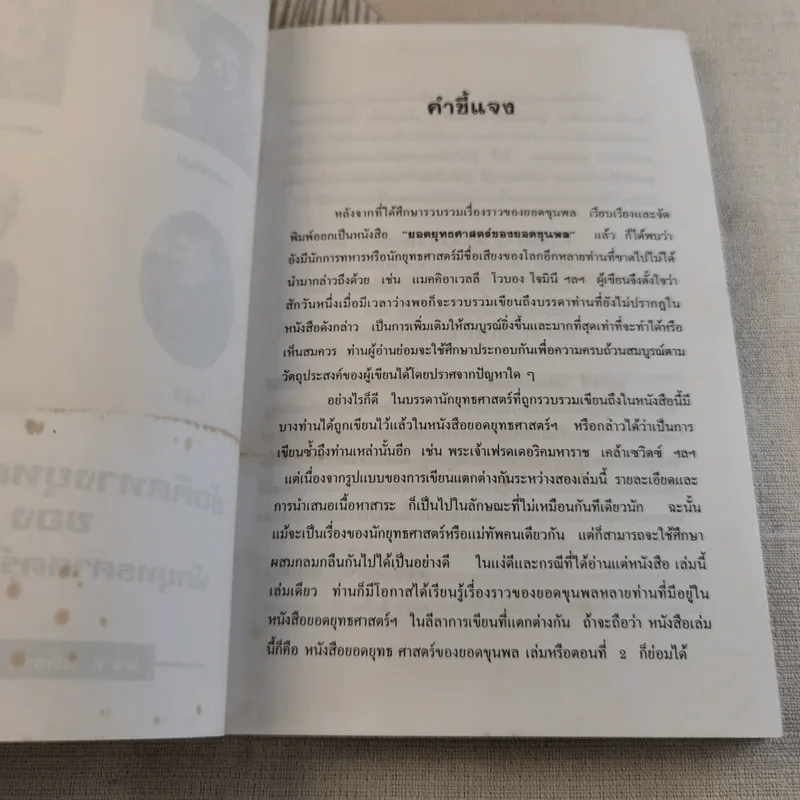 คำชี้แจง
หลังจากที่ได้ศึกษารวบรวมเรื่องราวของยอดขุนพล เรียบเรียงและจัด
พิมพ์ออกเป็นหนังสือ "ยอดยุทธศาสตร์ของยอดขุนพล" แล้ว ก็ได้พบว่า
ยังมีนักการทหารหรือนักยุทธศาสตร์มีชื่อเสียงของโลกอีกหลายท่านที่ขาดไปไม่ได้
นำมากล่าวถึงด้วย เช่น แมคคิอาเวลลี โวบอง โจมินี ฯลฯ ผู้เขียนจึงตั้งใจว่า
สักวันหนึ่งเมื่อมีเวลาว่างพอก็จะรวบรวมเขียนถึงบรรดาท่านที่ยังไม่ปรากฏใน
หนังสือดังกล่าว เป็นการเพิ่มเติมให้สมบูรณ์ยิ่งขึ้นและมากที่สุดเท่าที่จะทำได้หรือ
เห็นสมควร ท่านผู้อ่านย่อมจะใช้ศึกษาประกอบกันเพื่อความครบถ้วนสมบูรณ์ตาม
วัตถุประสงค์ของผู้เขียนได้โดยปราศจากปัญหาใด ๆ
อย่างไรก็ดี ในบรรดานักยุทธศาสตร์ที่ถูกรวบรวมเขียนถึงในหนังสือนี้มี
บางท่านได้ถูกเขียนไว้แล้วในหนังสือยอดยุทธศาสตร์ฯ หรือกล่าวได้ว่าเป็นการ
เขียนซ้ำถึงท่านเหล่านั้นอีก เช่น พระเจ้าเฟรดเดอริคมหาราช เคล้าเซวิตซ์ ฯลฯ
แต่เนื่องจากรูปแบบของการเขียนแตกต่างกันระหว่างสองเล่มนี้ รายละเอียดและ
การนำเสนอเนื้อหาสาระ ก็เป็นไปในลักษณะที่ไม่เหมือนกันทีเดียวนัก ฉะนั้น
แม้จะเป็นเรื่องของนักยุทธศาสตร์หรือแม่ทัพคนเดียวกัน แต่ก็สามารถจะใช้ศึกษา
ผสมกลมกลืนกันไปได้เป็นอย่างดี ในแง่ดีและกรณีที่ได้อ่านแต่หนังสือ เล่มนี้
เล่มเดียว ท่านก็มีโอกาสได้เรียนรู้เรื่องราวของยอดขุนพลหลายท่านที่มีอยู่ใน
หนังสือยอดยุทธศาสตร์ฯ ในลีลาการเขียนที่แตกต่างกัน ถ้าจะถือว่า หนังสือเล่ม
นี้ก็คือ หนังสือยอดยุทธ ศาสตร์ของยอดขุนพล เล่มหรือตอนที่ 2 ก็ย่อมได้